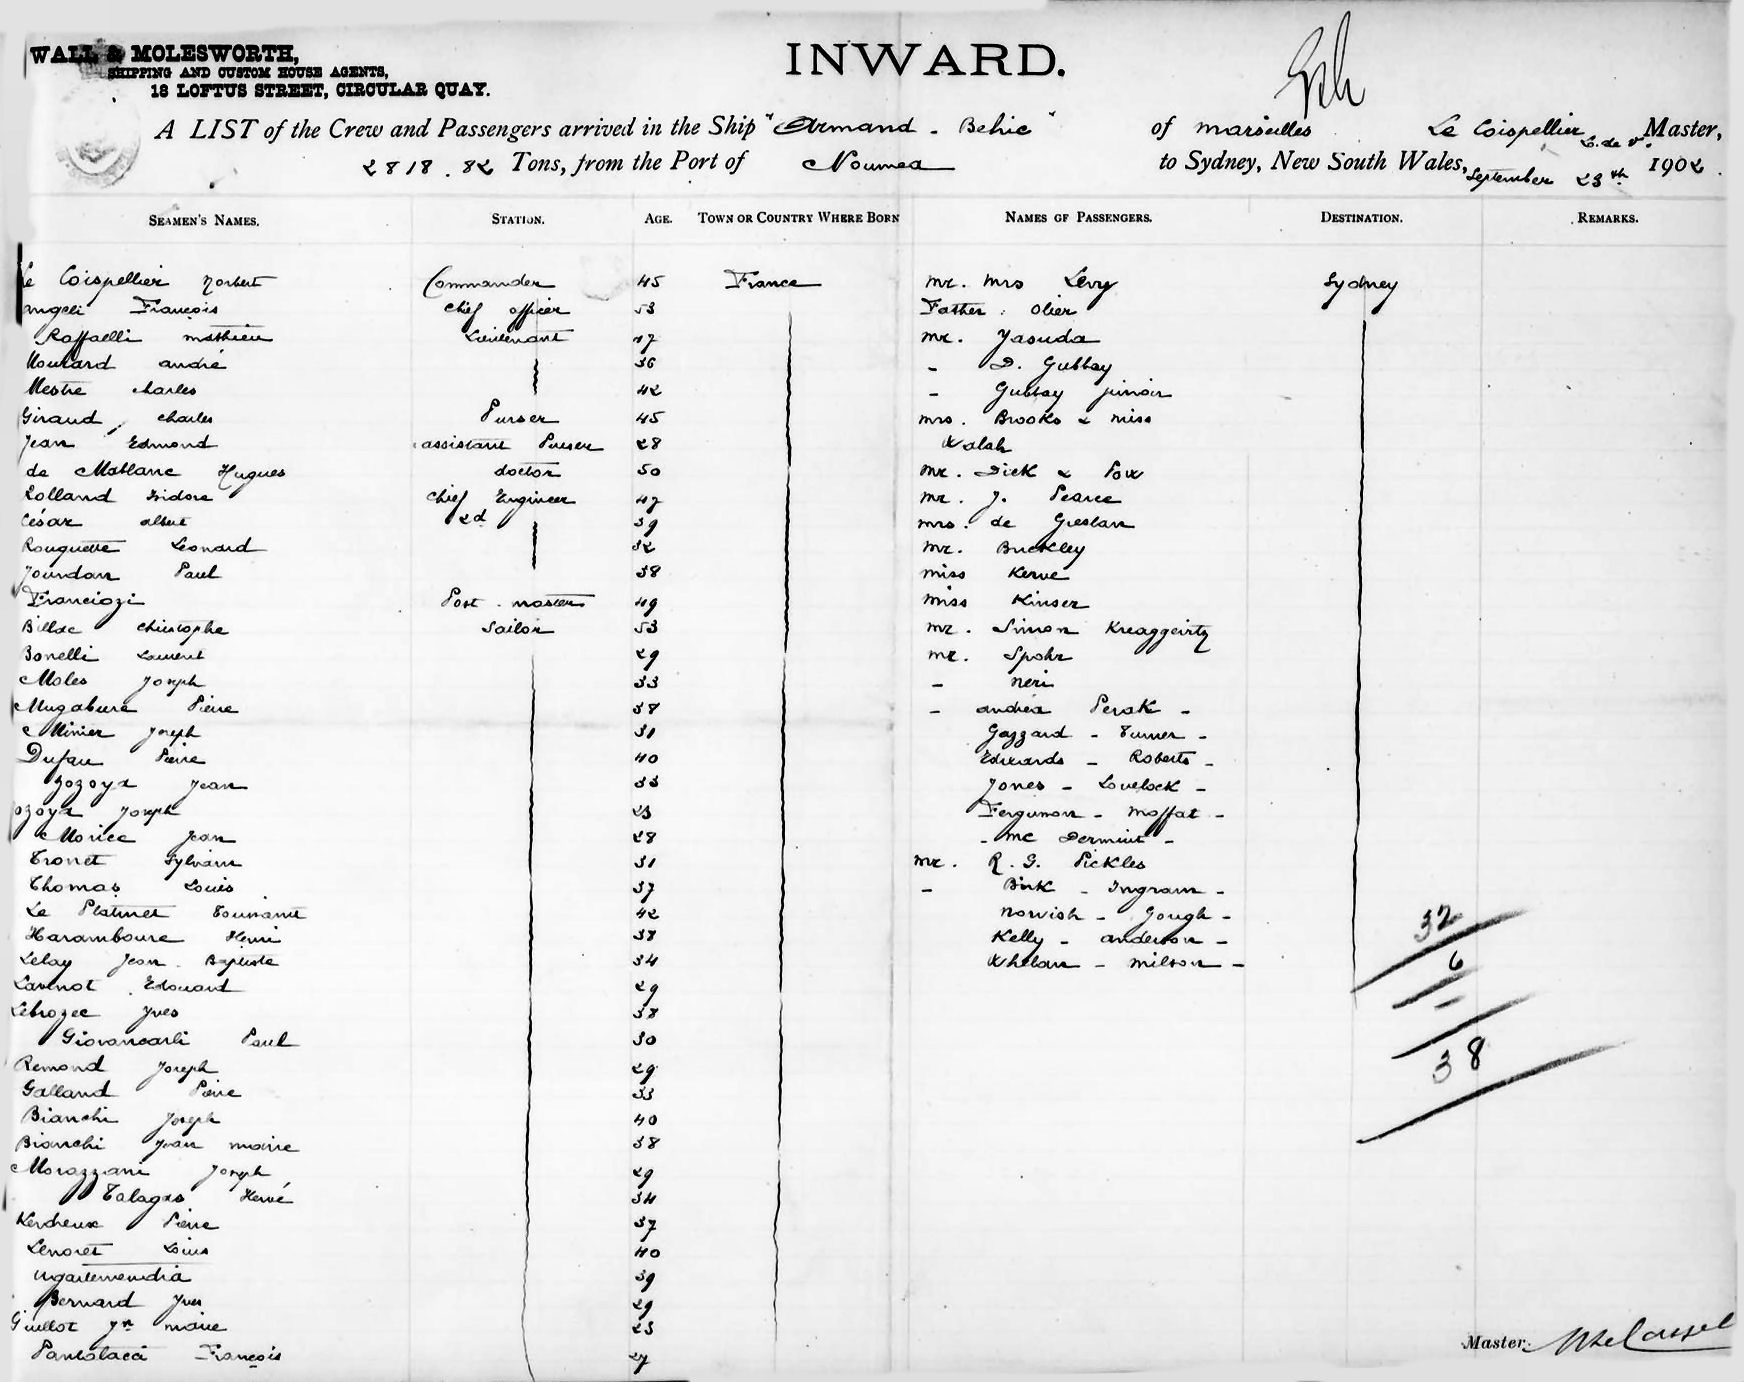 WALL & MOLESWORTH,
SHIPPING AND CUSTOM HOUSE AGENTS,
18 LOFTUS STREET, CIRCULAR QUAY.
INWARD.
A LIST of the Crew and Passengers arrived in the Ship "Armand - Behic" of Marseilles Le Coispellier L. de V. Master,
2818.82 Tons, from the Port of Noumea to Sydney, New South Wales, September 23th 1902.
SEAMEN'S NAMES. STATION. AGE. TOWN OR COUNTRY WHERE BORN NAMES OF PASSENGERS. DESTINATION. REMARKS.
Le Coispellier Norbert Commander 45 France Mr. Mrs Levy Sydney
Angeli François Chief officer 53 Father Olier
Raffaelli Mathieu Lieutenant 47 Mr. Yasuda
Houtard André 36 - D. Gubbay
Mestre Charles 42 - Gubbay junior
Giraud, Charles Purser 45 Mrs. Brooks & Miss
Jean Edmond assistant Purser 28 Walah
de Mablanc Hugues doctor 50 Mr. Dick & Pow
Lolland Isidore Chief Engineer 47 Mr. J. Pearce
César Albert 2d 39 Mrs. de Gieslan
Rouquette Leonard 32 Mr. Buckley
Jourdan Paul 38 Miss Kerve
Franciozi Post-master 49 Miss Kinser
Billoc Christophe Sailor 53 Mr. Simon Kreaggeirtz
Bonelli Laurent 29 Mr. Spohr
Moles Joseph 33 - Neri
Mugabure Pierre 38 - Andréa Perak -
Minier Joseph 31 Gozzard - Turner -
Dufau Pierre 40 Edwards - Roberts -
Gozoya Jean 33 Jones - Lovelock -
ozoya Joseph 23 Ferguson - Moffat -
Morice Jean 28 - Mc Dermint -
Tronet Sylvain 31 Mr. R. G. Pickles
Thomas Louis 37 - Birk - Ingram -
Le Platinet Toussaint 42 Norvish - Gough -
Haramboure Henri 38 Kelly - Anderson -
Lelay Jean Baptiste 34 Whelan - Milson -
Lavenot Edouard 29
Lebrozec Yves 38
Giovancarli Paul 30
Remond Joseph 29
Galland Pierre 33
Bianchi Joseph 40
Bianchi Jean Marie 38
Morazzani Joseph 29
Talagas Hervé 34
Kerdreux Pierre 37
Lenoret Louis 40
Ugartemendia 39
Bernard Yves 29
Guillot Jn Marie 23
Pantalacci François 27
32
6
38
Master.